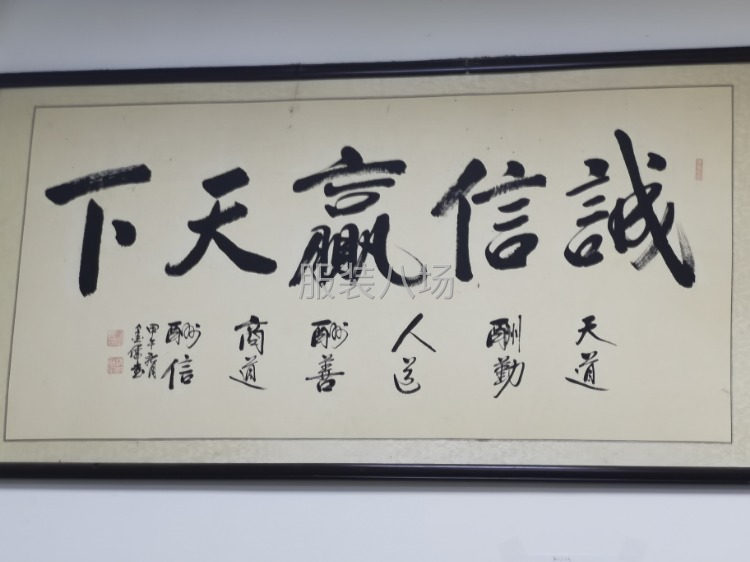 誠信贏天下
天道
酬勤
人道
酬善
商道
酬信
甲午
服装八场